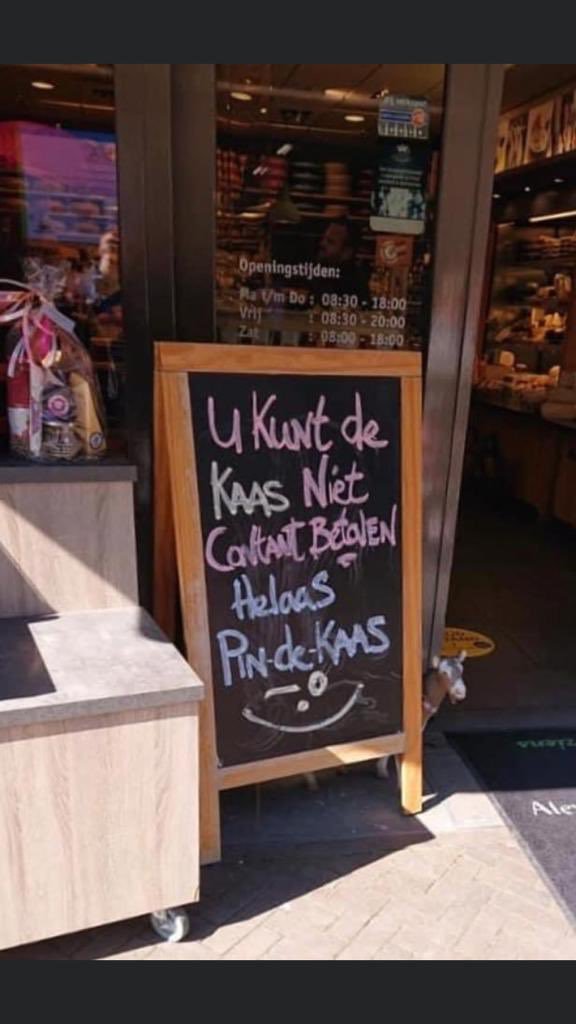 Openingstijden:
Ma t/m Do : 08:30 - 18:00
Vrij : 08:30 - 20:00
Zat : 08:00 - 18:00
U Kunt de
KAAS Niet
Contant Betalen
Helaas
Pin-de-KAAS